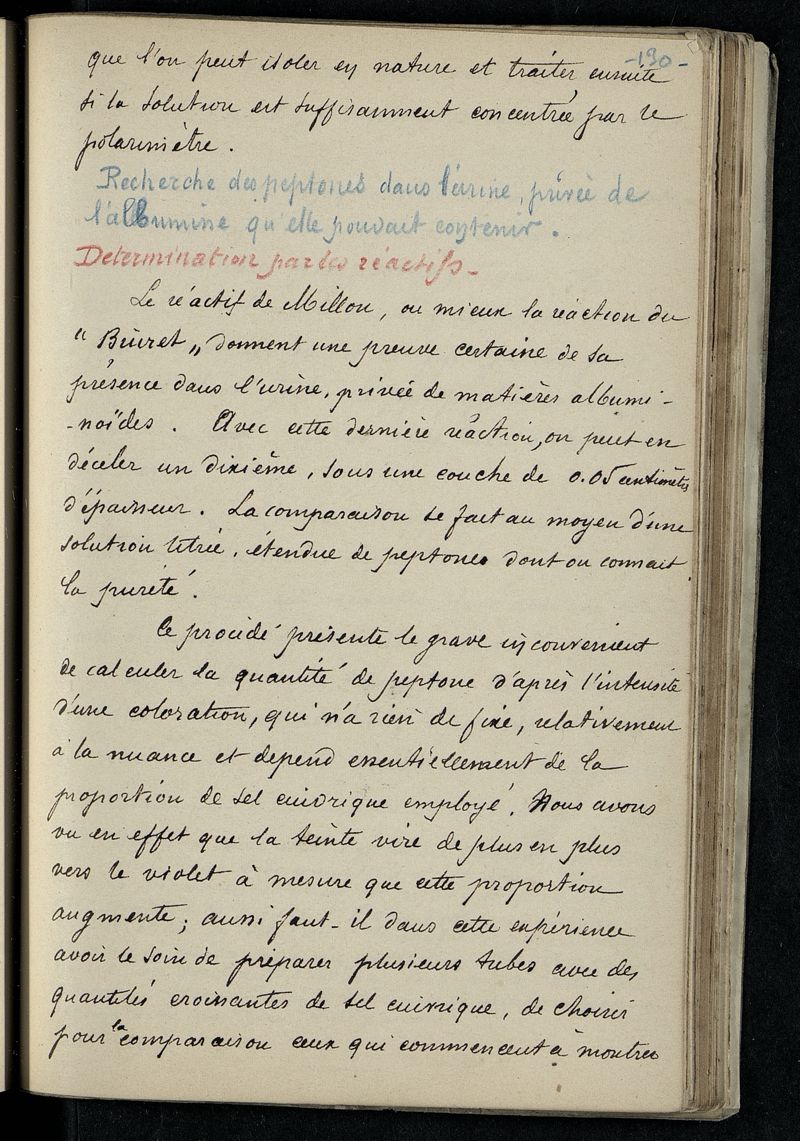 -130-
que l'on peut isoler en nature et traiter, ensuite
si la solution est suffisamment concentrée par le
polarimètre.
Recherche des peptones dans l'urine, privée de
l'albumine qu'elle pouvait contenir.
Determination par les réactifs-
Le réactif de Millon, ou mieux la réaction du
" Biuret " donnent une preuve certaine de sa
présence dans l'urine, privée de matières albumi-
-noïdes. Avec cette dernière réaction, on peut en
déceler un dixième, sous une couche de 0.05 centimètres
d'épaisseur. La comparaison se fait au moyen d'une
solution titrée, étendue de peptones dont on connait
la pureté.
Ce procédé présente le grave inconvenient
de calculer la quantité de peptone d'après l'intensité
d'une coloration, qui n'a rien de fixe, relativement
à la nuance et depend essentiellement de la
proportion de sel cuivrique employé. Nous avons
vu en effet que la teinte vire de plus en plus
vers le violet à mesure que cette proportion
augmente; aussi faut-il dans cette expérience
avoir le soin de préparer plusieurs tubes avec des
quantités croissantes de sel cuivrique, de choisir
pour la comparaison ceux qui commencent à montrer